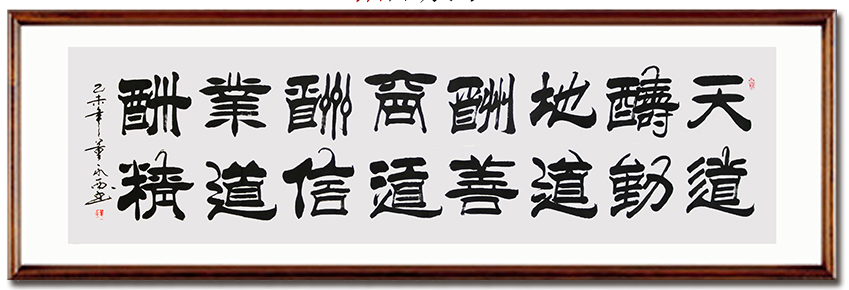 天道
醻勤
地道
酬善
商道
酬信
業道
酬精
未年董永